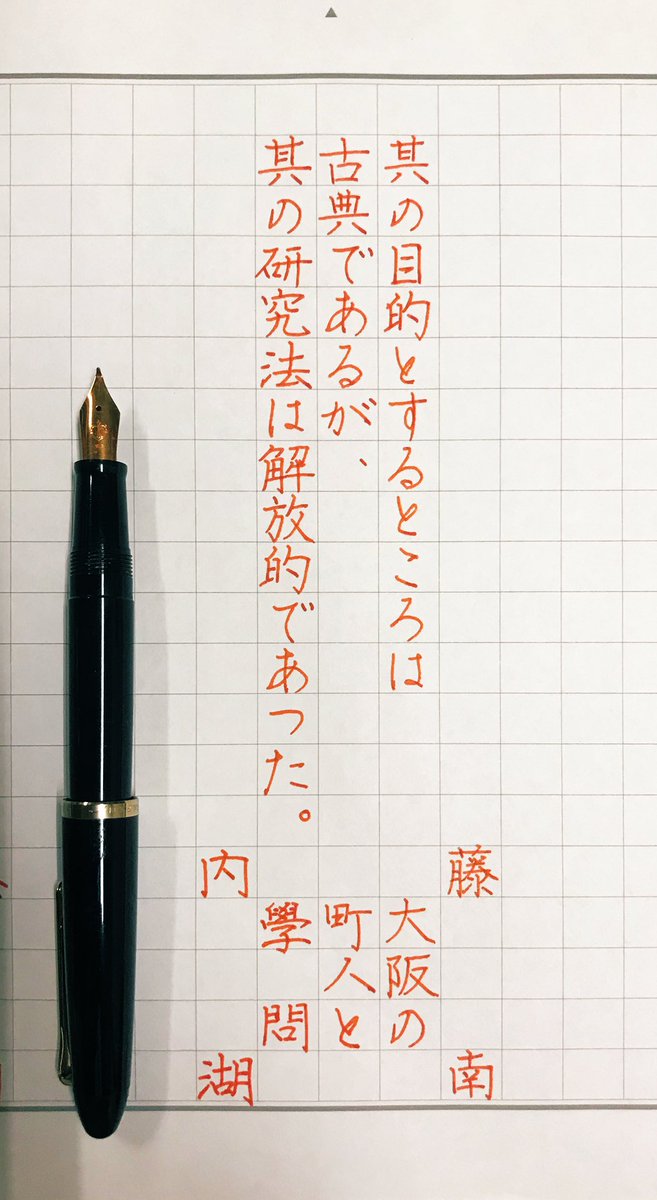 其の目的とするところは
古典であるが、
其の研究法は解放的であつた。
内藤
大阪の
町人と
學問
湖南